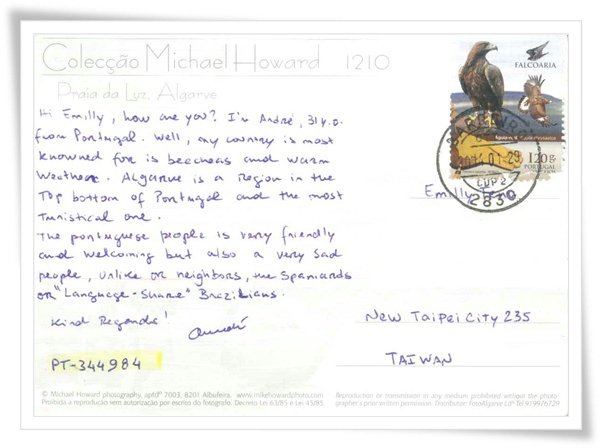 Colecção Michael Howard 1210
Praia da Luz, Algarve
Hi Emilly, how are you? I'm André, 31 y.o.
from Portugal. Well, my country is most
knowned for is beecheas and warm
Weather. Algarve is a Region in the
Top bottom of Portugal and the most
Turistical one.
The portuguese people is very friendly
and welcoming but also a very sad
people, unlike or neighbors, the Spaniards
or "Language-Share" Brazilians.
Kind Regards!
André
PT-344984
FALCOARIA
120g
PORTUGAL
2014.01.29
2830
Emilly
New Taipei City 235
TAIWAN
© Michael Howard photography, aptdº 7003, 8201 Albufeira. www.mikehowardphoto.com
Proibida a reprodução sem autorização por escrito do fotógrafo. Decreto Lei 63/85 e Lei 45/85
Reproduction or transmission in any medium, prohibited without the photo-
grapher's prior written permission. Distributor: FotoAlgarve Ldª Tel 919976729